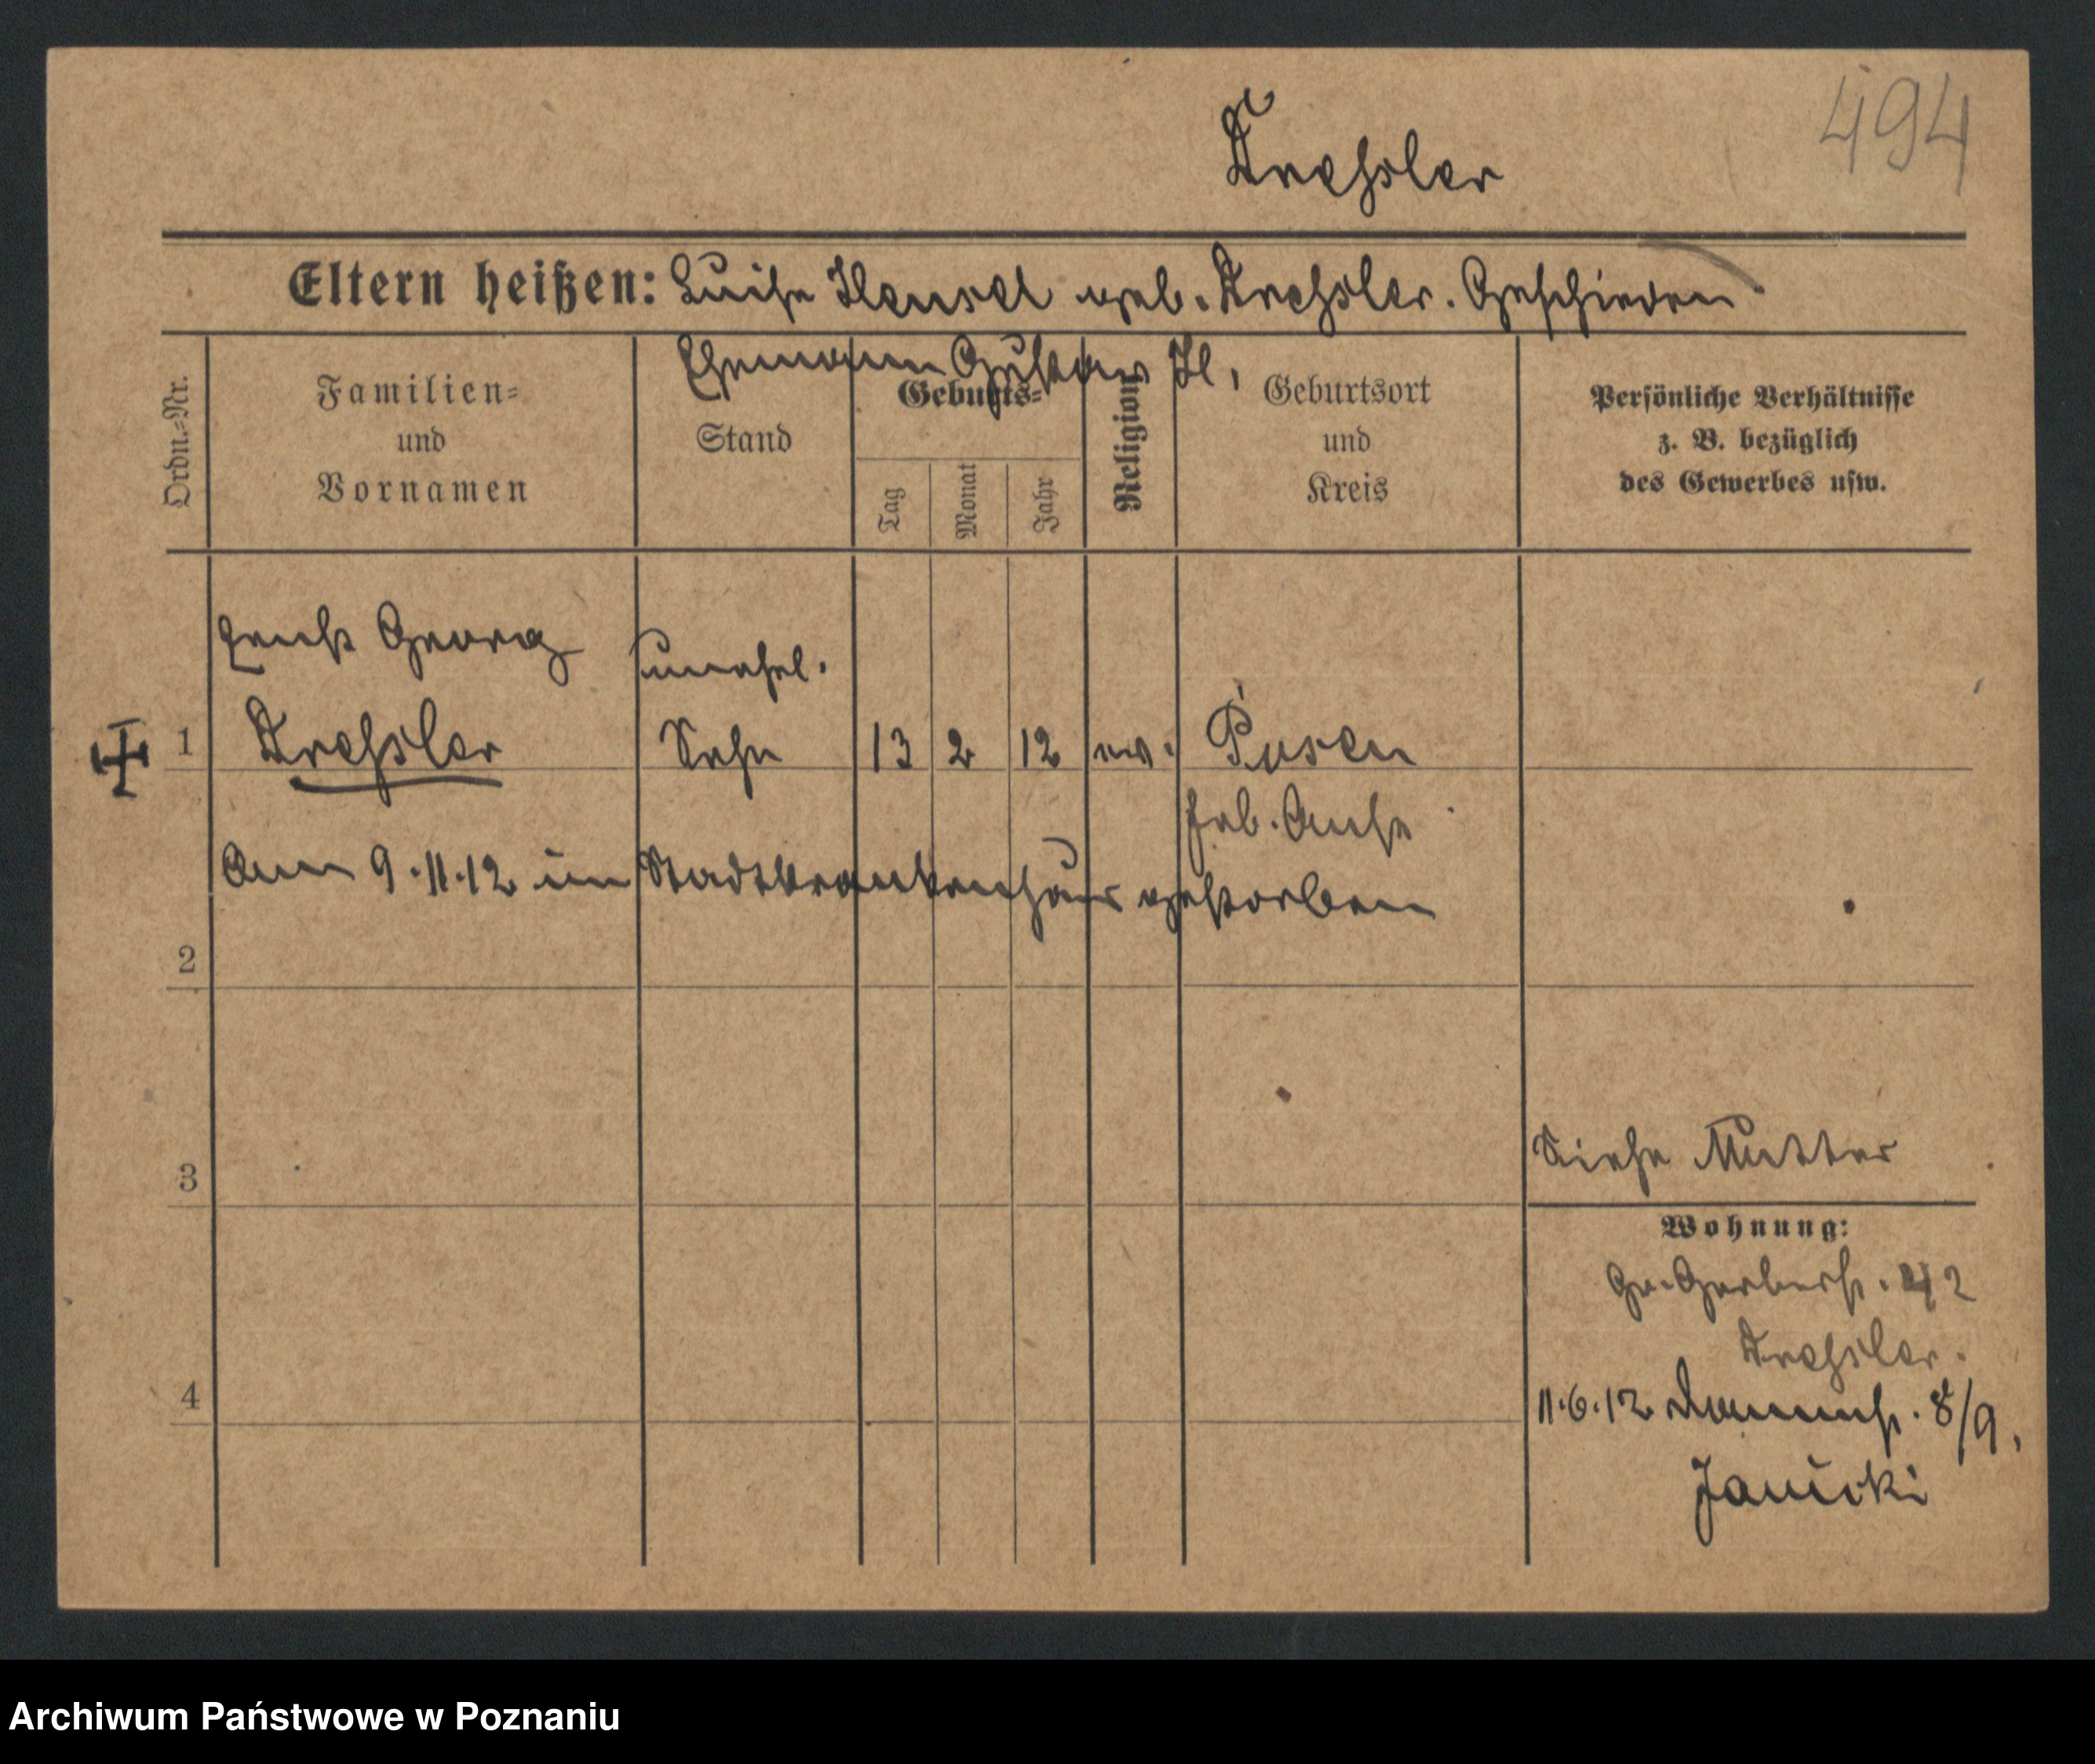 494
Dressler
Eltern heißen: Luise Hensel geb. Dressler. Geschieden
Ehemann Gustav H.
Ordn.-Nr.
Familien-
und
Vornamen
Stand
Geburts-
Tag
Monat
Jahr
Religion
Geburtsort
und
Kreis
Persönliche Verhältnisse
z. B. bezüglich
des Gewerbes usw.
Georg unehel.
1 Dressler Sohn 13 2 12 ev. Posen
Am 9.11.12 im Stadtkrankenhaus gestorben
2
3
Siehe Mutter
Wohnung:
Gr. Gerberstr. 42
Dressler.
4
11.6.12 8/9,
Janicki
Archiwum Państwowe w Poznaniu